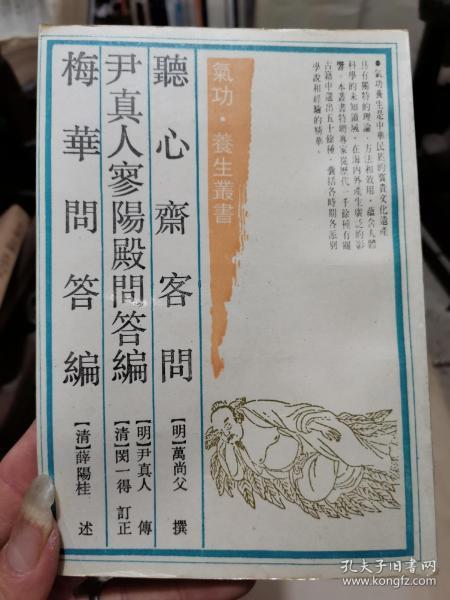 ●氣功養生是中華民族的寶貴文化遺產
具有獨特的理論、方法和效用，蘊含人體
科學的未知領域，在海內外產生廣泛的影
響。本叢書特聘專家從歷代一千餘種有關
古籍中選出五十餘種，囊括各時期各派別
學說和經驗的精華。
氣功·養生叢書
聽心齋客問
【明】萬尚父 撰
尹真人寥陽殿問答編
【明】尹真人 傳
【清】閔一得 訂正
梅華問答編
【清】薛陽桂 述
孔夫子旧书网
www.kongfz.com